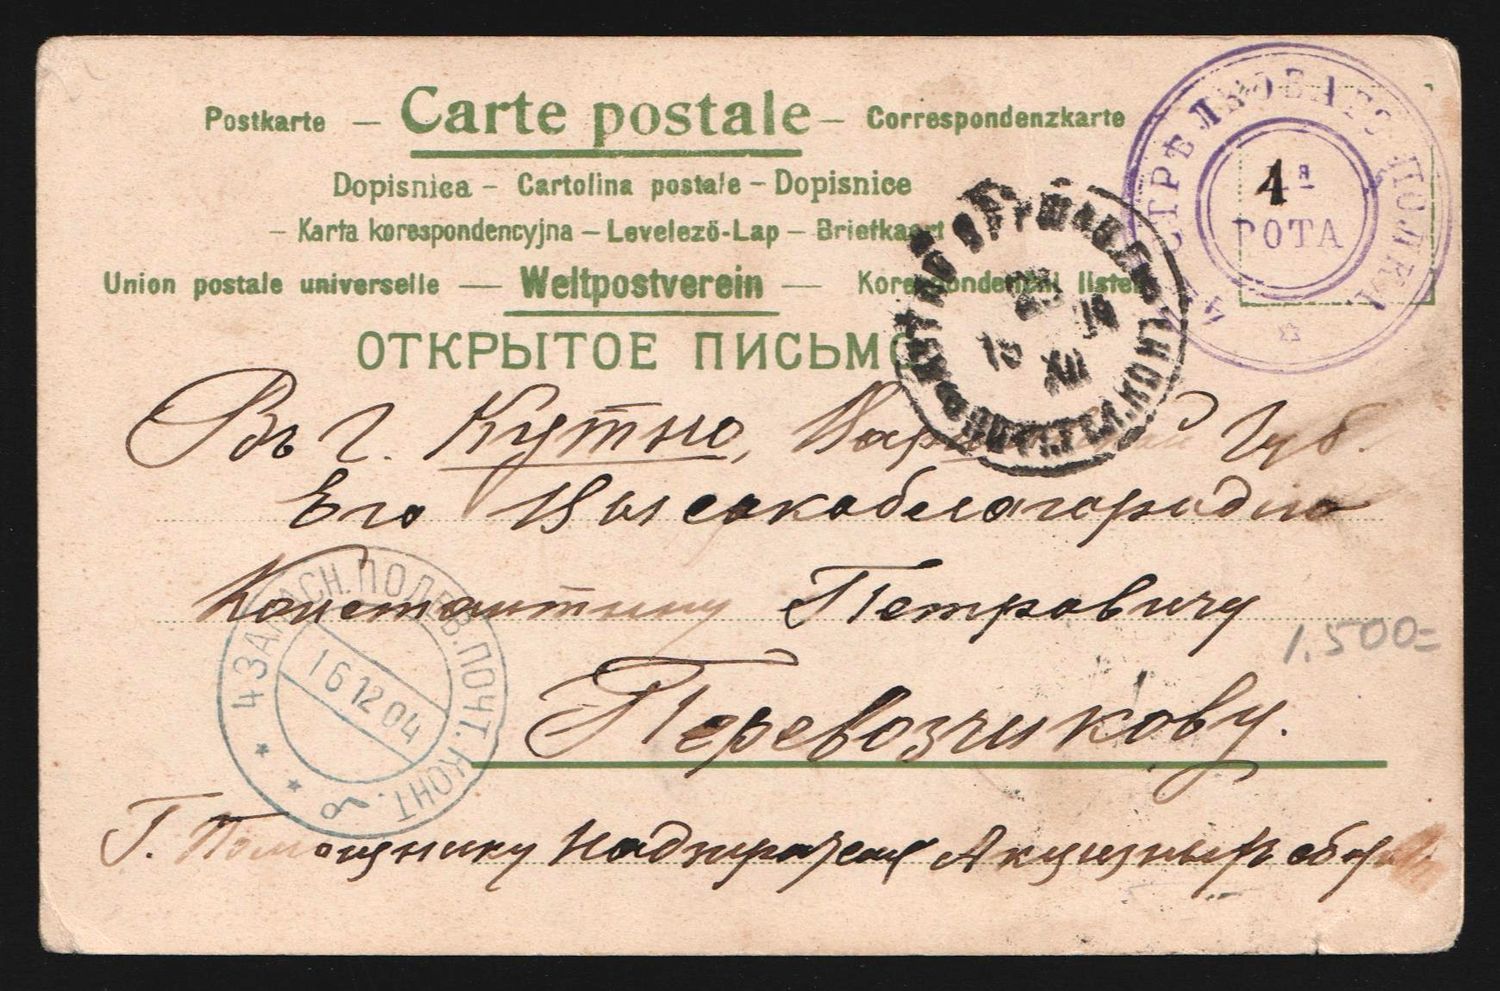 Postkarte — Carte postale — Correspondenzkarte
Dopisnica - Cartolina postale - Dopisnice
- Karta korespondencyjna - Levelező-Lap - Briefkaart
Union postale universelle — Weltpostverein — Korespondenční listek
ОТКРЫТОЕ ПИСЬМО
СТРѢЛКОВАГО ПОЛКА
1 я
РОТА
КУТНО ВАРШАВ.
13 XII 04
Въ г. Кутно, Варшавской Губ.
Его Высокоблагородию
Константину Петровичу
1.500=
Перевозчикову.
4 ЗАПАСН. ПОЛЕВ. ПОЧТ. КОНТ.
16 12 04
Г. Помощнику Надзирателя Акцизныхъ сборовъ